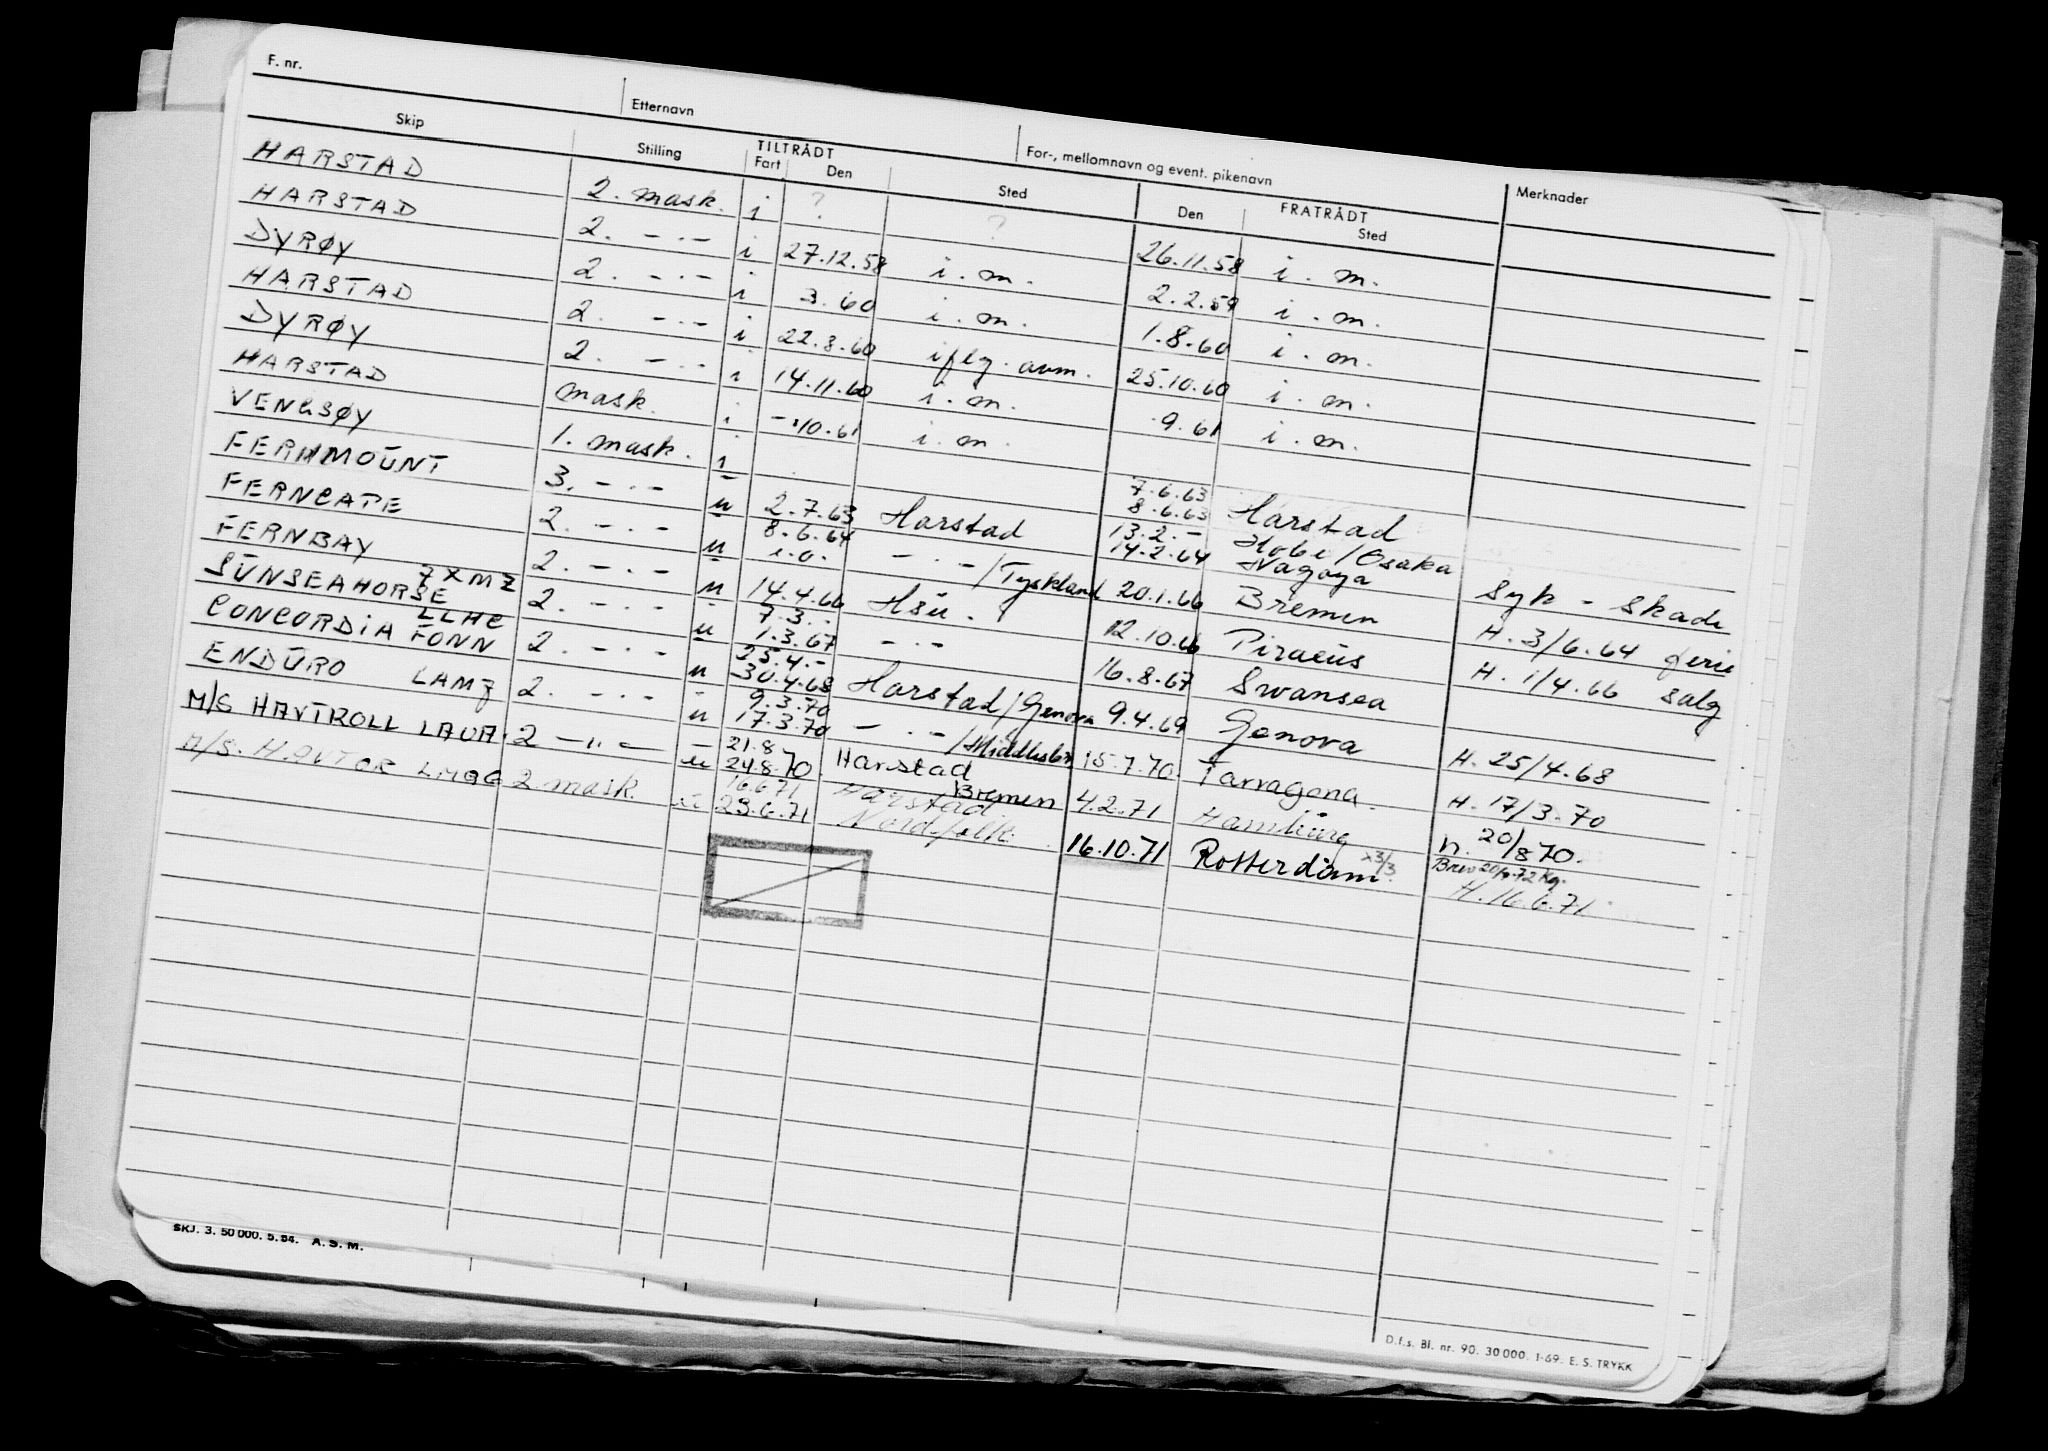 F. nr.
Etternavn
For-, mellomnavn og event. pikenavn
Skip Stilling TILTRÅDT Fart Den Sted FRATRÅDT Den Sted Merknader
HARSTAD 2. mask. i ? ? 26.11.58 i. m.
HARSTAD 2. -.- i 27.12.58 i. m. 2.2.59 i. m.
DYRØY 2. -.- i 3.60 i. m. 1.8.60 i. m.
HARSTAD 2. -.- i 22.8.60 iflg. avm. 25.10.60 i. m.
DYRØY 2. -.- i 14.11.60 i. m. 9.61 i. m.
HARSTAD mask. i -10.61 i. m.
VENGSØY 1. mask. i 7.6.63 8.6.63 Harstad
FERNMOUNT 3. -.- u 2.7.63 Harstad 13.2.- 14.2.64 Kobe/Osaka Nagoya Syk - Skade
FERNCAPE 2. -.- u 8.6.64 i.o. -.-/Tyskland 20.1.66 Bremen H. 3/6.64 ferie
FERNBAY 2. -.- u 14.4.66 Hsu. 12.10.66 Piraeus H. 1/4.66 salg
SUNSEAHORSE 7XMZ 2. -.- u 7.3.- 1.3.67 -.- 16.8.67 Swansea
CONCORDIA FONN LLHC 2. -.- u 25.4.- 30.4.68 Harstad/Genova 9.4.69 Genova H. 25/4.68
ENDURO LAMZ 2. -.- u 9.3.70 17.3.70 -.-/Middlesbr 15.7.70 Tarragona. H. 17/3.70
M/S HAVTROLL LAUA 2 -"- u 21.8 24.8.70 Harstad Bremen 4.2.71 Hamburg h. 20/8 70.
M/S. HAVTOR LMGG 2 mask. u 16.6 71 23.6.71 Harstad Nordfolk 16.10.71 Rotterdam. H. 16.6.71
SKJ. 3. 50 000. 5.54. A. S. M.
D.f.s. Bl. nr. 90. 30 000. 1-69. E. S. TRYKK